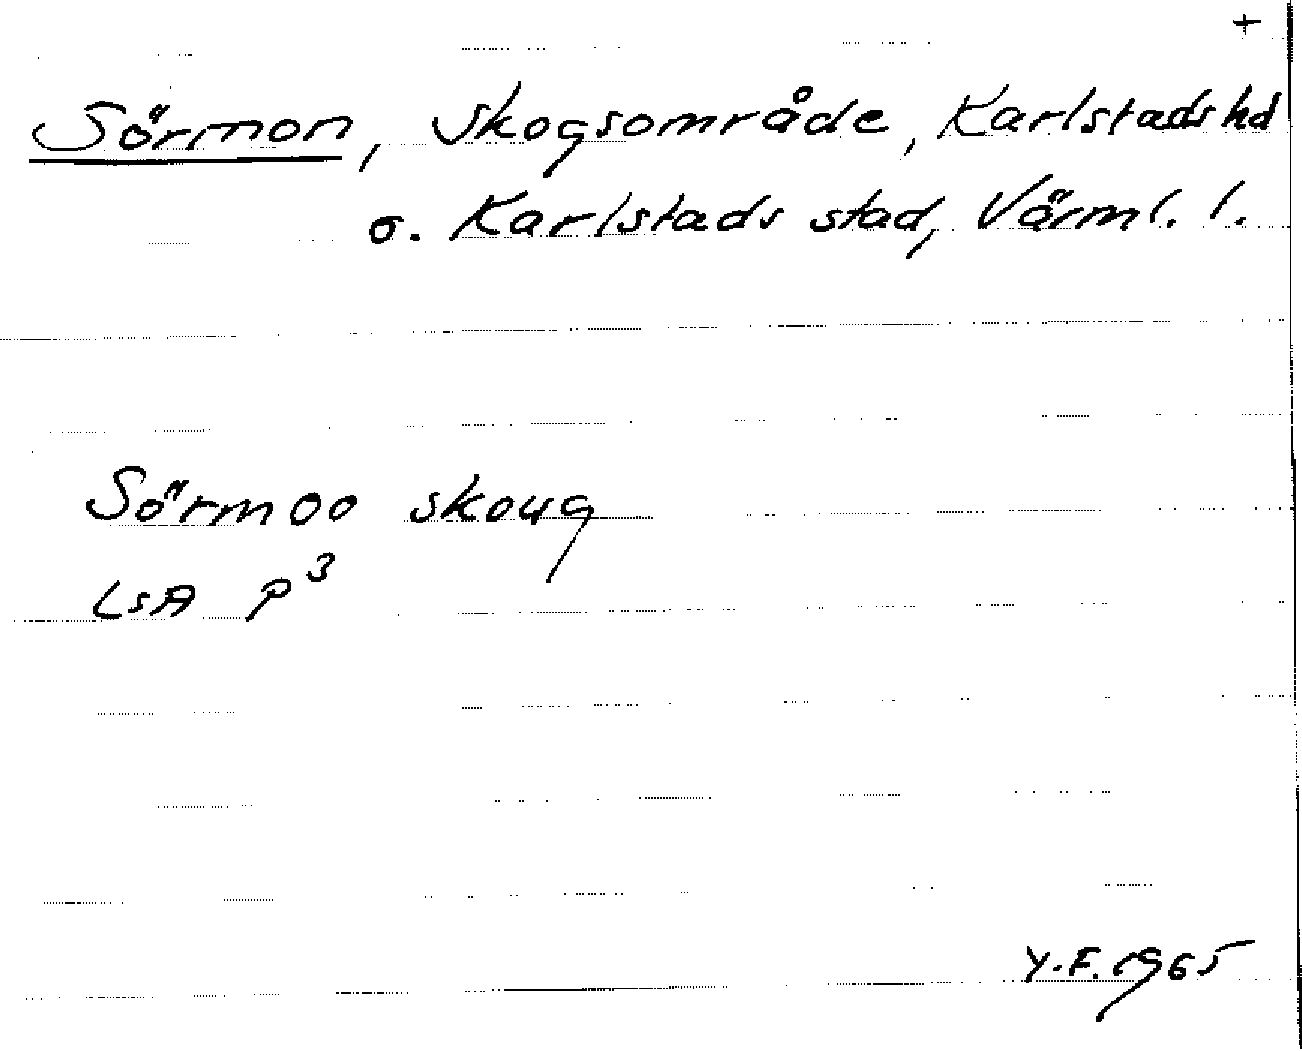 +
Sörmon, skogsområde, Karlstads hd
o. Karlstads stad, Värml. l.
Sörmoo skoug
LSA P³
Y.F. 1965